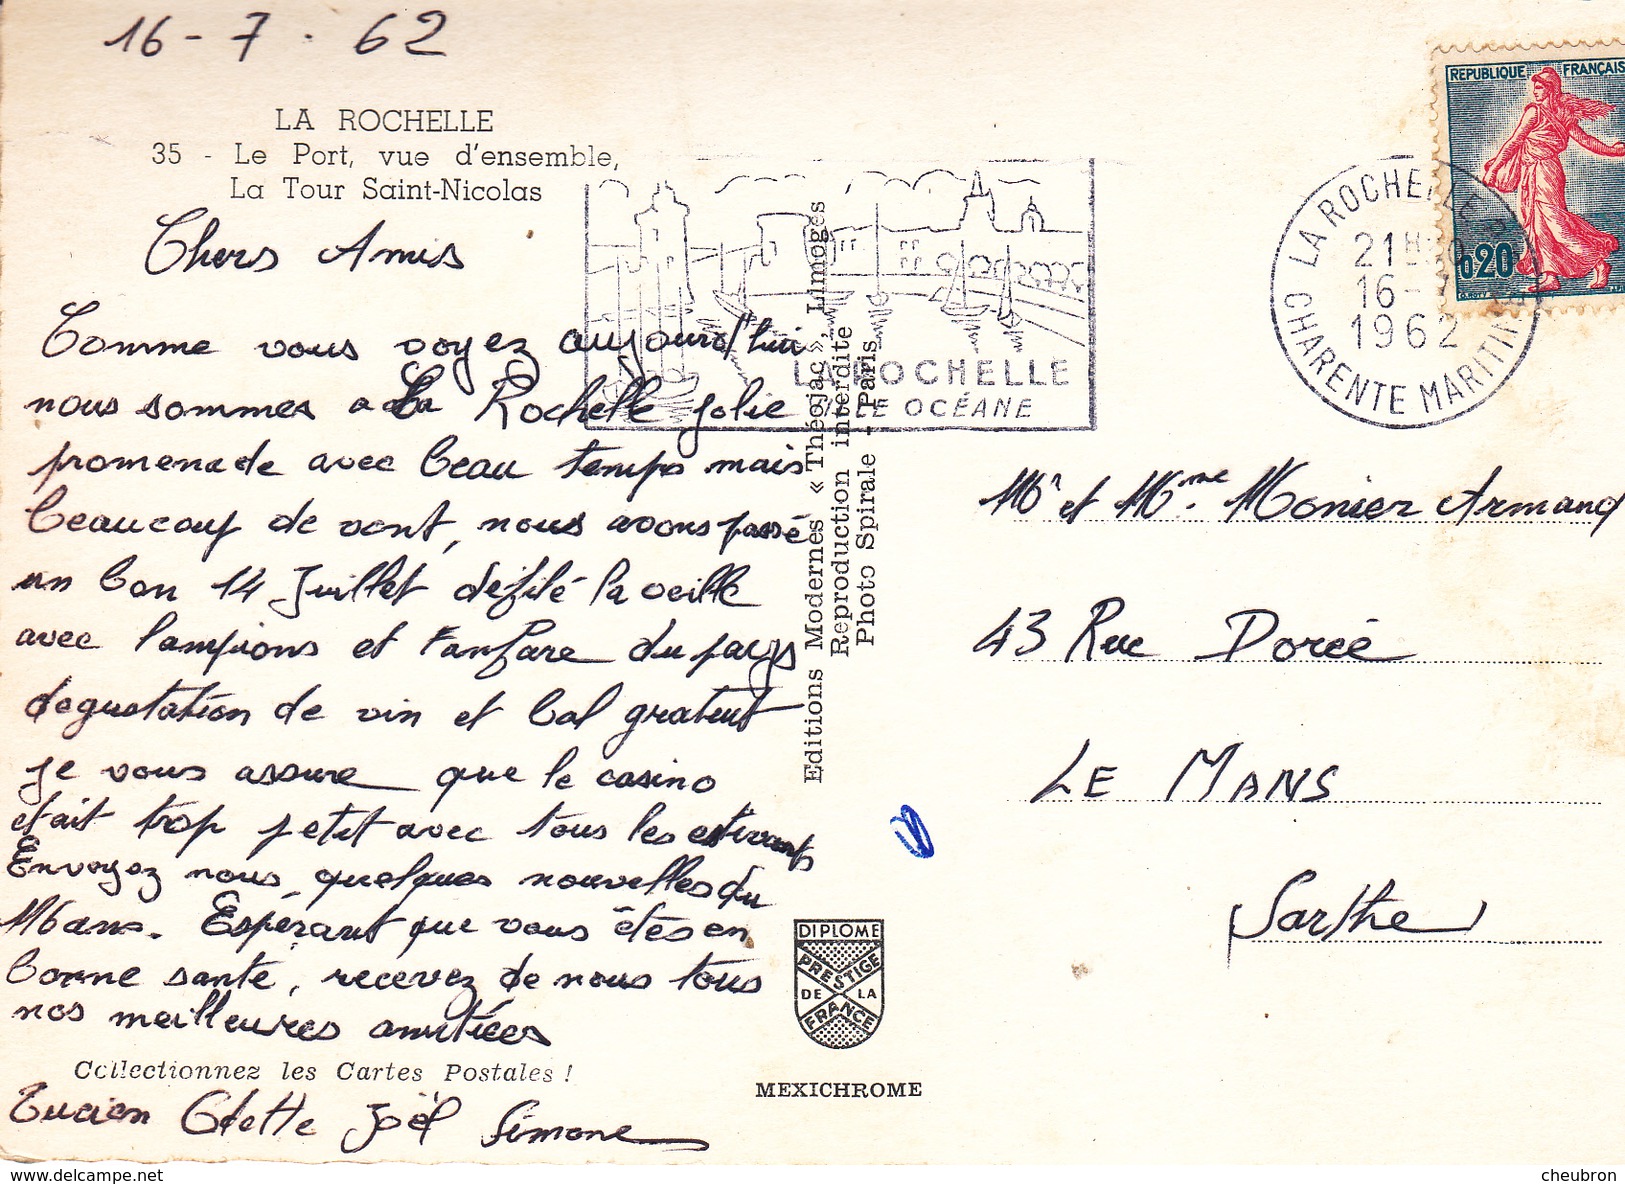 16 - 7 - 62
LA ROCHELLE
35 - Le Port, vue d'ensemble,
La Tour Saint-Nicolas
Chers Amis
Comme vous voyez aujourd'hui
nous sommes a La Rochelle jolie
promenade avec beau temps mais
beaucoup de vent, nous avons passé
un bon 14 Juillet défilé la veille
avec lampions et fanfare du pays
degustation de vin et bal gratuit
je vous assure que le casino
etait trop petit avec tous les estivants
Envoyez nous quelques nouvelles du
Mans. Espérant que vous êtes en
bonne santé, recevez de nous tous
nos meilleures amitiées
Collectionnez les Cartes Postales !
Lucien Odette Joël Simone
Editions Modernes « Théojac », Limoges
Reproduction interdite
Photo Spirale - Paris
DIPLOME
PRESTIGE
DE LA
FRANCE
MEXICHROME
LA ROCHELLE
OCÉANE
REPUBLIQUE FRANÇAISE
0,20
LA ROCHELLE
21H30
16-7
1962
CHARENTE MARITIME
Mr et Mme Monier Armand
43 Rue Dorée
LE MANS
Sarthe
www.delcampe.net
cheubron